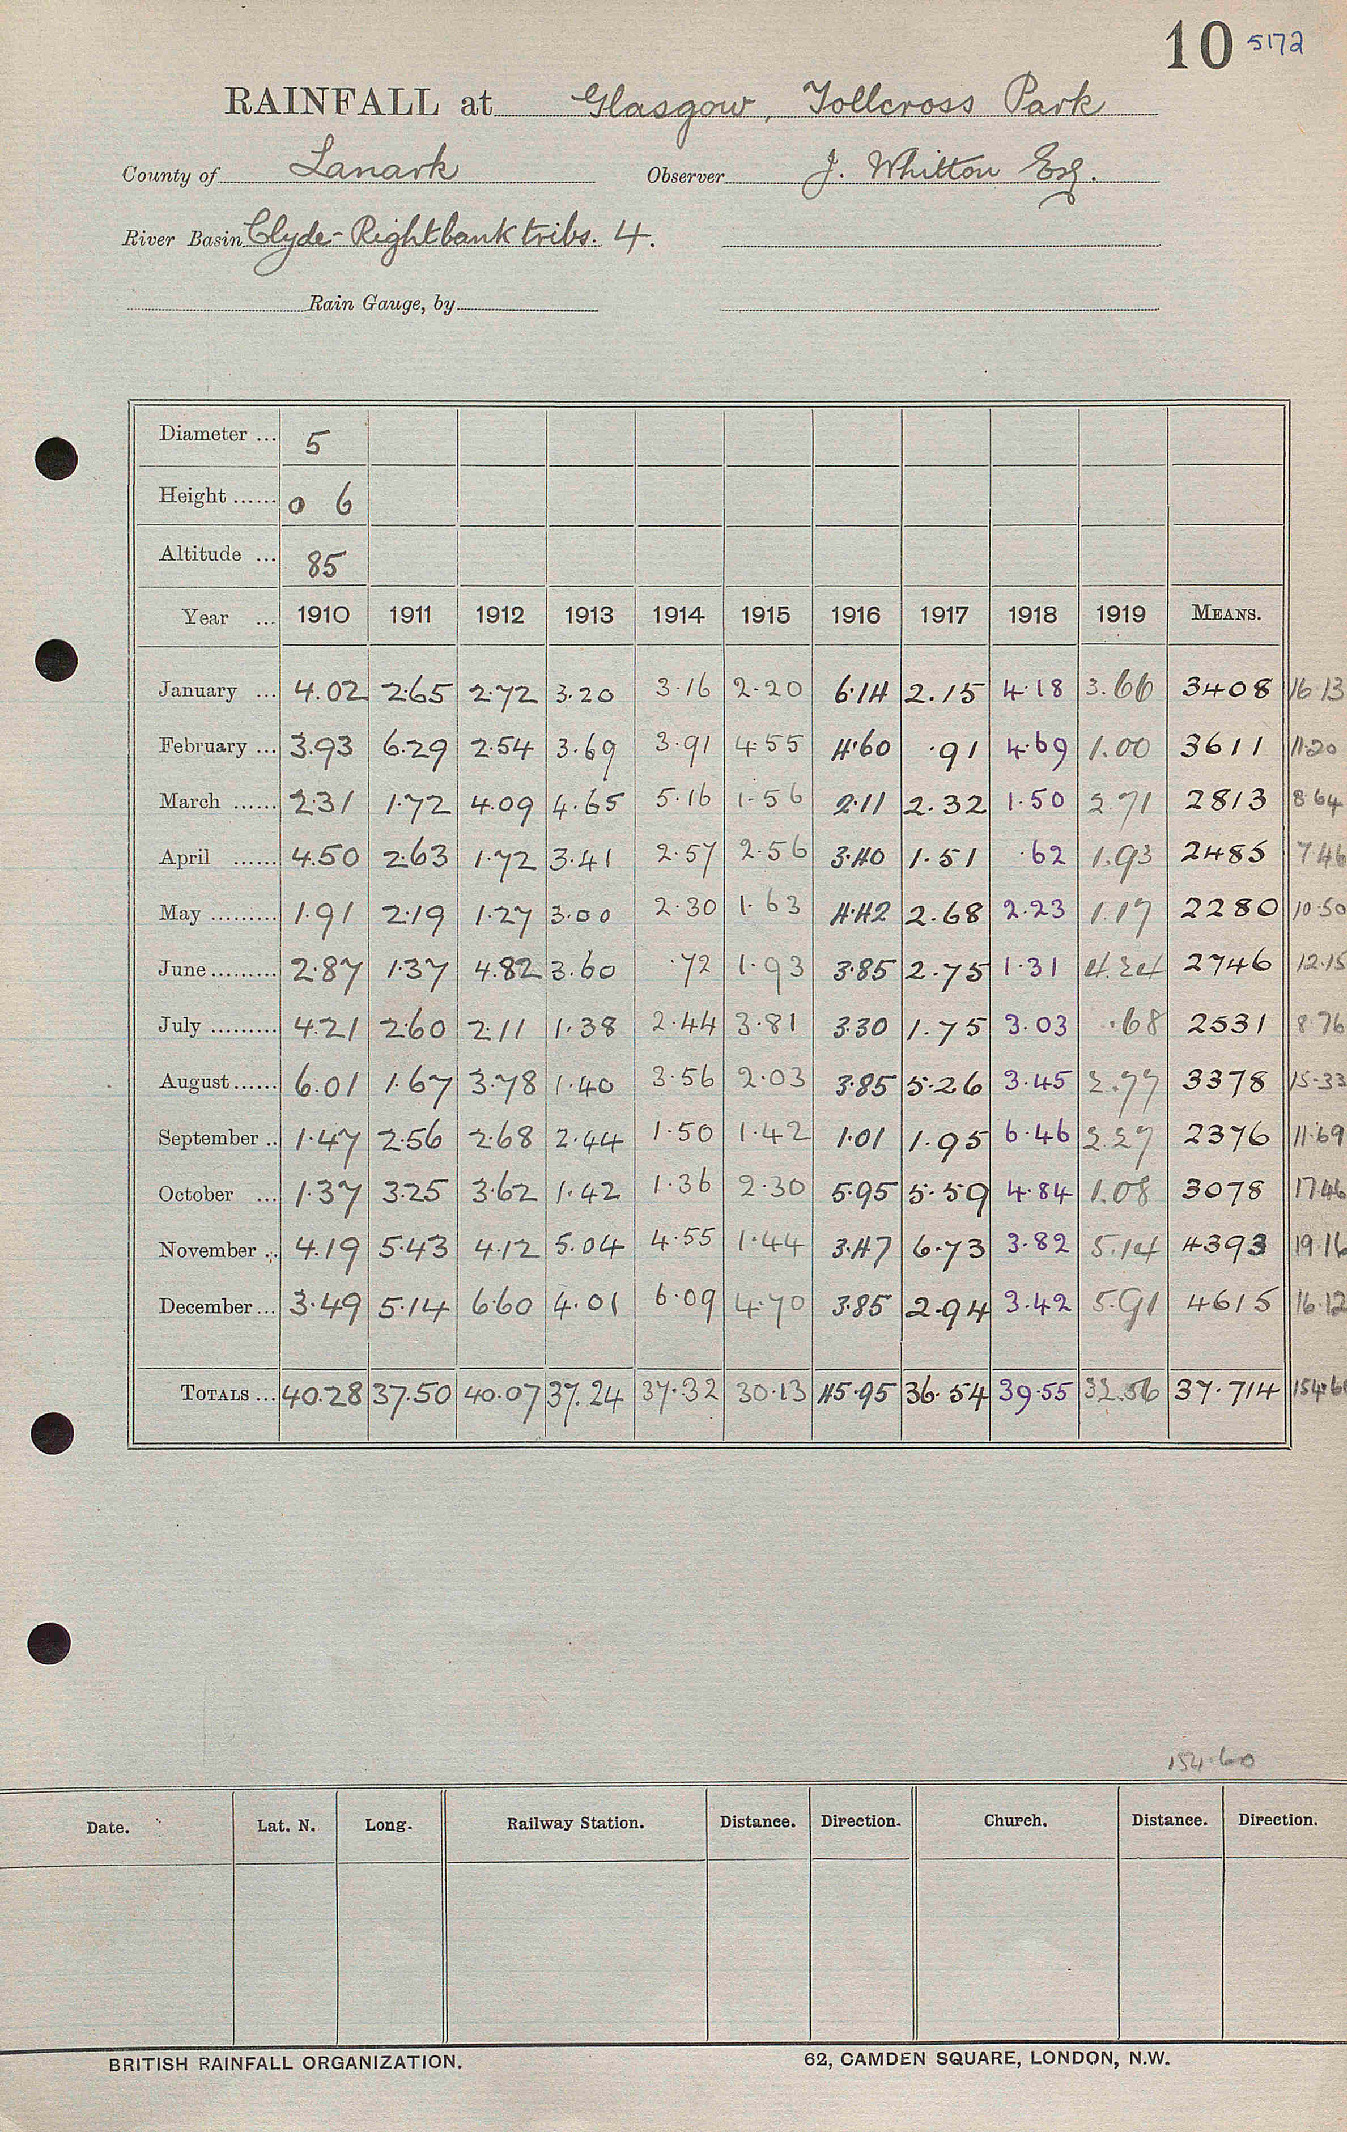 10 5172
RAINFALL at Glasgow, Tollcross Park
County of Lanark Observer J. Whitton Esq.
River Basin Clyde-Right bank tribs. 4.
Rain Gauge, by
Diameter ... 5
Height ...... 0 6
Altitude ... 85
Year ... 1910 1911 1912 1913 1914 1915 1916 1917 1918 1919 MEANS.
January ... 4.02 2.65 2.72 3.20 3.16 2.20 6.14 2.15 4.18 3.66 3408 16.13
February ... 3.93 6.29 2.54 3.69 3.91 4.55 4.60 .91 4.69 1.00 3611 11.20
March ...... 2.31 1.72 4.09 4.65 5.16 1.56 2.11 2.32 1.50 2.71 2813 8.64
April ...... 4.50 2.63 1.72 3.41 2.57 2.56 3.40 1.51 .62 1.93 2485 7.46
May ......... 1.91 2.19 1.27 3.00 2.30 1.63 4.42 2.68 2.23 1.17 2280 10.50
June ......... 2.87 1.37 4.82 3.60 .72 1.93 3.85 2.75 1.31 4.24 2746 12.15
July ......... 4.21 2.60 2.11 1.38 2.44 3.81 3.30 1.75 3.03 .68 2531 8.76
August ...... 6.01 1.67 3.78 1.40 3.56 2.03 3.85 5.26 3.45 2.77 3378 15.33
September .. 1.47 2.56 2.68 2.44 1.50 1.42 1.01 1.95 6.46 2.27 2376 11.69
October ... 1.37 3.25 3.62 1.42 1.36 2.30 5.95 5.59 4.84 1.08 3078 17.46
November .. 4.19 5.43 4.12 5.04 4.55 1.44 3.47 6.73 3.82 5.14 4393 19.16
December ... 3.49 5.14 6.60 4.01 6.09 4.70 3.85 2.94 3.42 5.91 4615 16.12
TOTALS ... 40.28 37.50 40.07 37.24 37.32 30.13 45.95 36.54 39.55 32.56 37.714 154.6
154.60
Date. Lat. N. Long. Railway Station. Distance. Direction. Church. Distance. Direction.
BRITISH RAINFALL ORGANIZATION. 62, CAMDEN SQUARE, LONDON, N.W.